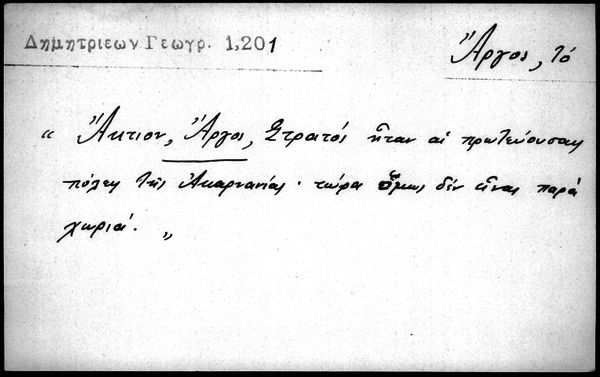 Δημητριεων Γεωγρ. 1,201
Ἄργος, τό
" Ἄκτιον, Ἄργος, Στρατός ἦταν αἱ πρωτεύουσαις
πόλες τῆς Ἀκαρνανίας · τώρα ὅμως δέν εἶναι παρά
χωριά. "